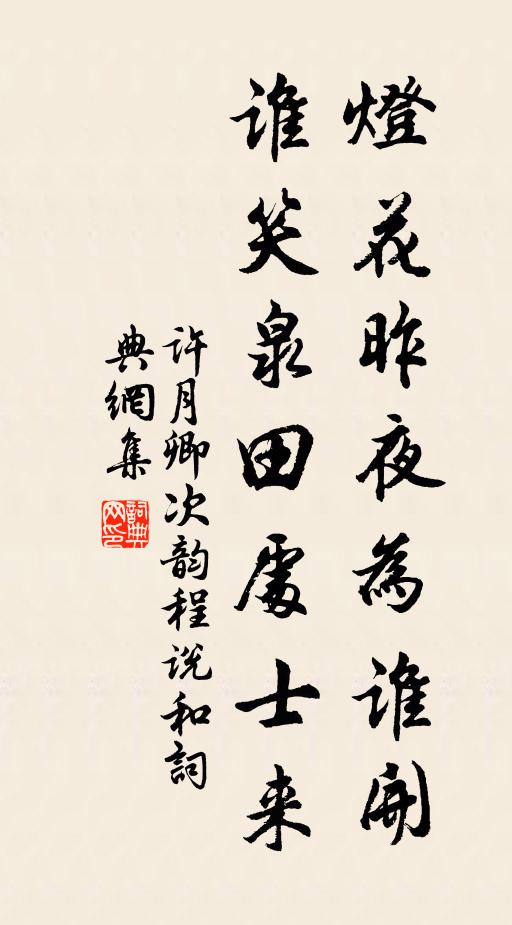 燈花昨夜為誰開
誰笑泉田處士来
許月卿次韵程说和詞
典網集
詞典
网印